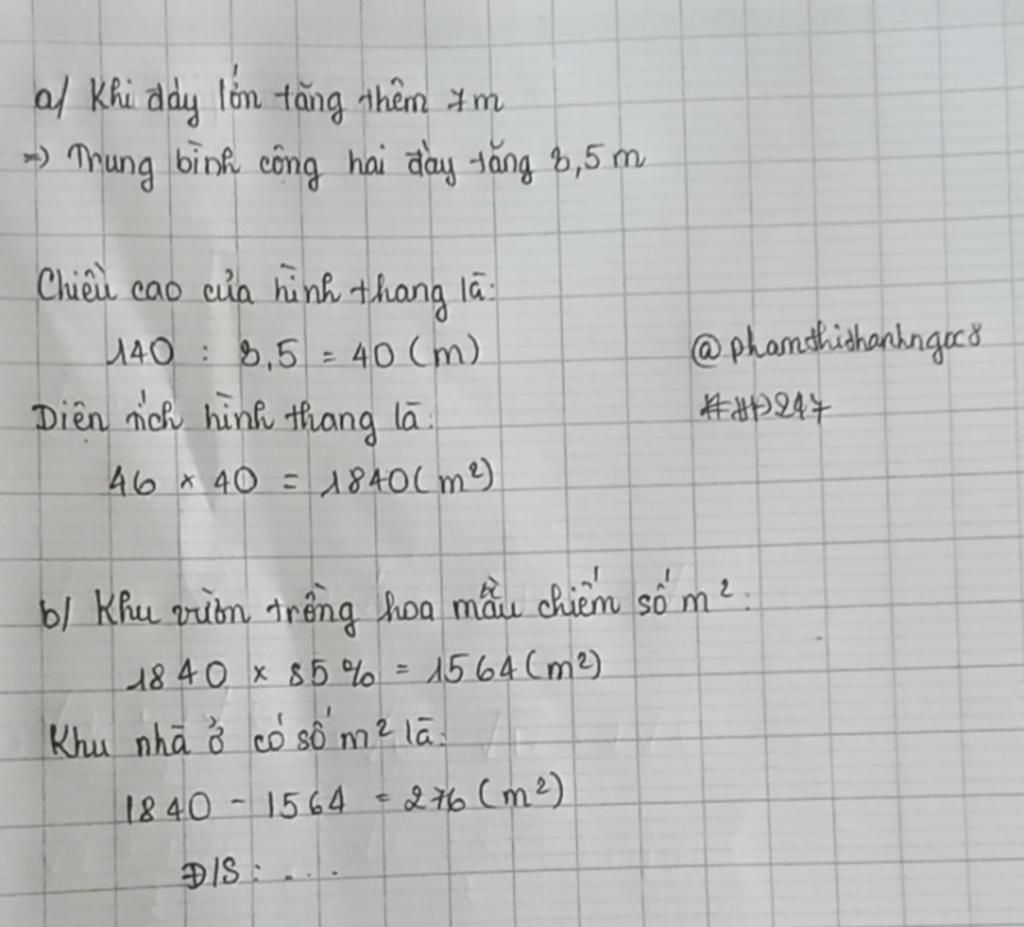 a/ Khi đáy lớn tăng thêm 7m
=> Trung bình cộng hai đáy tăng 3,5m
Chiều cao của hình thang là:
140 : 3,5 = 40 (m)
@phamthithanhngoc8
Diện tích hình thang là:
#HP247
46 × 40 = 1840 (m²)
b/ Khu vườn trồng hoa mẫu chiếm số m²:
1840 × 85% = 1564 (m²)
Khu nhà ở có số m² là:
1840 - 1564 = 276 (m²)
Đ/S: ....